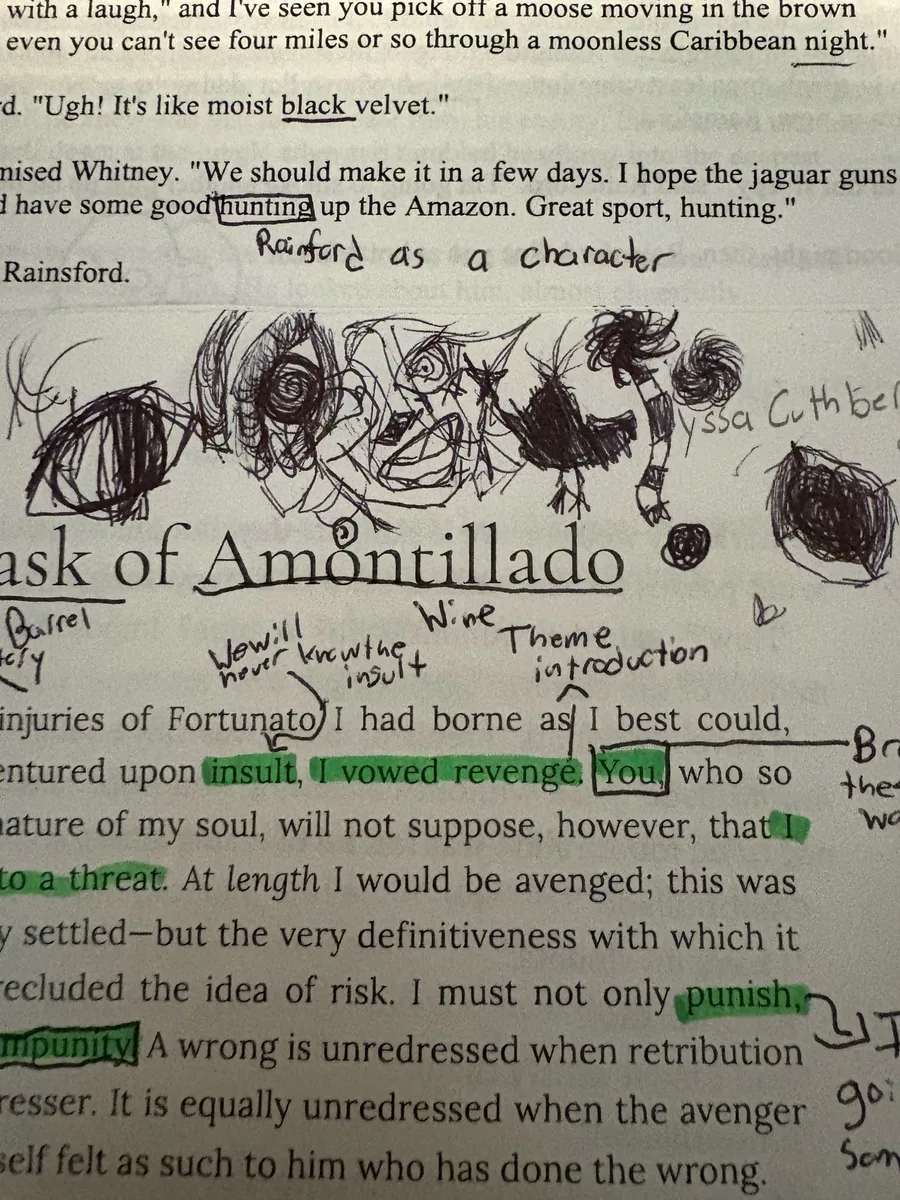 with a laugh," and I've seen you pick off a moose moving in the brown
even you can't see four miles or so through a moonless Caribbean night."
d. "Ugh! It's like moist black velvet."
mised Whitney. "We should make it in a few days. I hope the jaguar guns
d have some good hunting up the Amazon. Great sport, hunting."
Rainford as a character
Rainsford.
yssa Cuthber
ask of Amontillado
Barrel
Wine
We will
never know the
insult
Theme
introduction
injuries of Fortunato I had borne as I best could,
entured upon insult, I vowed revenge. You, who so
Br
the
wo
nature of my soul, will not suppose, however, that I
to a threat. At length I would be avenged; this was
y settled—but the very definitiveness with which it
recluded the idea of risk. I must not only punish,
I
mpunity. A wrong is unredressed when retribution
goi
resser. It is equally unredressed when the avenger
som
self felt as such to him who has done the wrong.